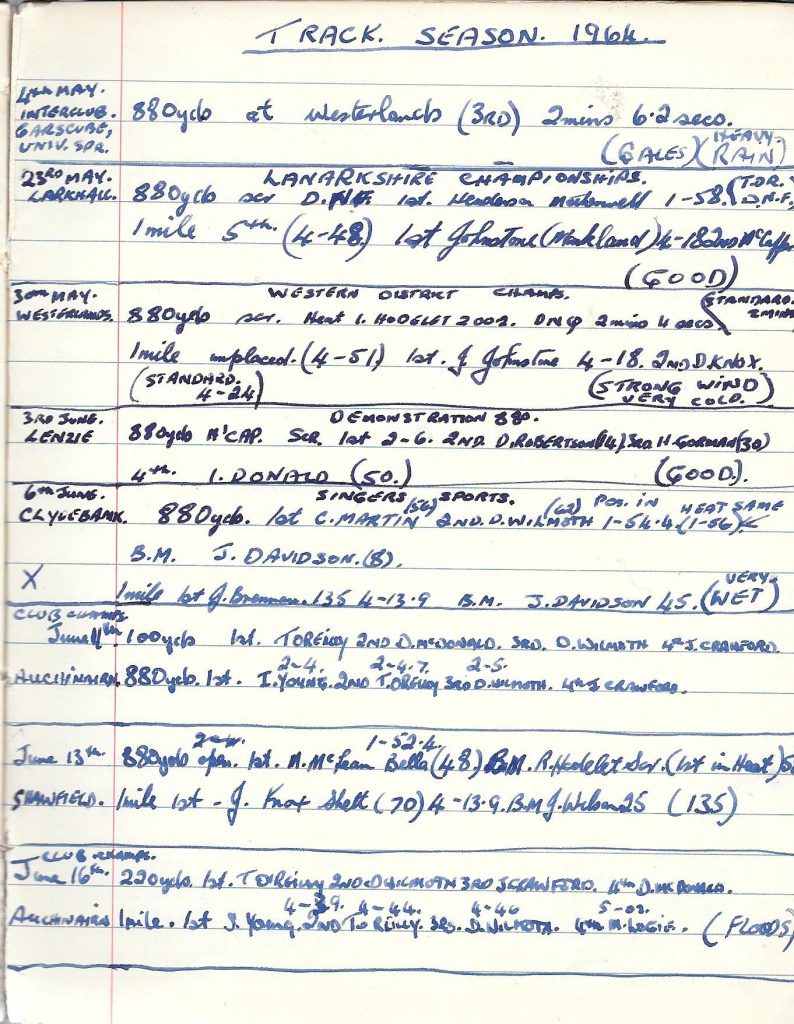 TRACK. SEASON. 1964.
4TH MAY.
INTERCLUB.
GARSCUBE,
UNIV. SPR.
880yds at Westerlands (3RD) 2mins 6.2 secs.
(GALES) (HEAVY RAIN)
23RD MAY.
LARKHALL.
LANARKSHIRE CHAMPIONSHIPS.
880yds scr D.N.F. 1st. Henderson Motherwell 1-58. (T.D.R. D.N.F.
1mile 5th. (4-48) 1st Johnstone (Monkland) 4-18 2nd McCaffer
(GOOD)
30TH MAY.
WESTERLANDS.
WESTERN DISTRICT CHAMPS.
880yds scr. Heat 1. HODELET 2002. DNQ 2mins 4 secs (STANDARD. 2MINS
1mile unplaced. (4-51) 1st. J. Johnstone 4-18. 2ND D. KNOX.
(STANDARD. 4-24)
(STRONG WIND VERY COLD.)
3RD JUNE.
LENZIE
DEMONSTRATION 880.
880yds H'CAP. Scr. 1st 2-6. 2ND. D. ROBERTSON (14) 3RD H. GORMAN (30)
4th. I. DONALD (50.) (GOOD.)
6TH JUNE.
CLYDEBANK.
SINGERS SPORTS.
880yds. 1st C. MARTIN (56) 2ND. D. WILMOTH (62) 1-54.4 (1-56) POS. IN HEAT SAME
B.M. J. DAVIDSON. (8).
X
1mile 1st J. Brennan. 135 4-13.9 B.M. J. DAVIDSON 45. (VERY WET)
CLUB CHAMPS.
June 11th. 100yds 1st. T OREILLY 2ND D. McDONALD. 3RD. D. WILMOTH 4TH J. CRAWFORD.
2-4. 2-4.7. 2-5.
AUCHINAIRN. 880yds. 1st. I. YOUNG. 2ND T. OREILLY 3RD D. WILMOTH. 4TH J CRAWFORD.
1-52.4
June 13th. 880yds open. 1st. M. McLean Bella (48) B.M. R. Hodelet Scr. (1st in Heat)
SHAWFIELD. 1mile 1st - J. Knox Shett (70) 4-13.9. B.M J. Wilson 25 (135)
CLUB CHAMPS.
June 16th. 220yds. 1st. T OREILLY 2ND. D WILMOTH 3RD J CRAWFORD. 4th D. McDONALD.
4-39. 4-44. 4-46 5-02.
AUCHINAIRN 1mile. 1st J. Young. 2ND T. O REILLY. 3RD. D. WILMOTH. 4th M. LOGIE. (FLOODS)